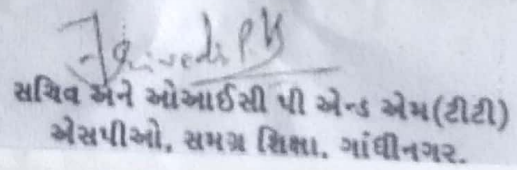 Trivedi P.K
સચિવ અને ઓઆઈસી પી એન્ડ એમ(ટીટી)
એસપીઓ, સમગ્ર શિક્ષા, ગાંધીનગર.